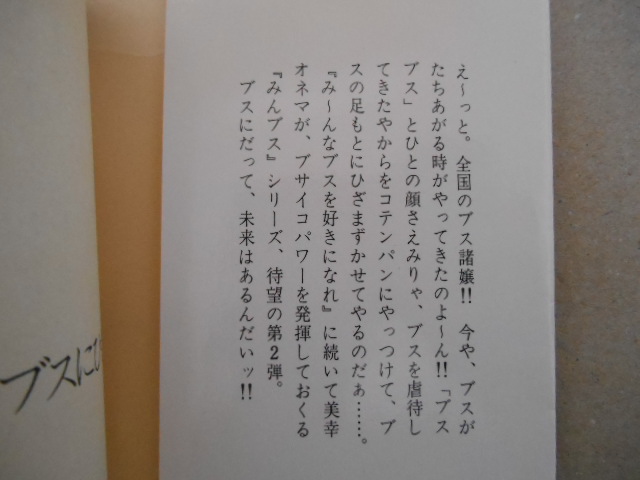 え～っと。全国のブス諸嬢!!　今や、ブスが
たちあがる時がやってきたのよ～ん!!「ブス
ブス」とひとの顔さえみりゃ、ブスを虐待し
てきたやからをコテンパンにやっつけて、ブ
スの足もとにひざまずかせてやるのだぁ……。
『み～んなブスを好きになれ』に続いて美幸
オネマが、ブサイコパワーを発揮しておくる
『みんブス』シリーズ、待望の第2弾。
ブスにだって、未来はあるんだいッ!!
ブスにひ